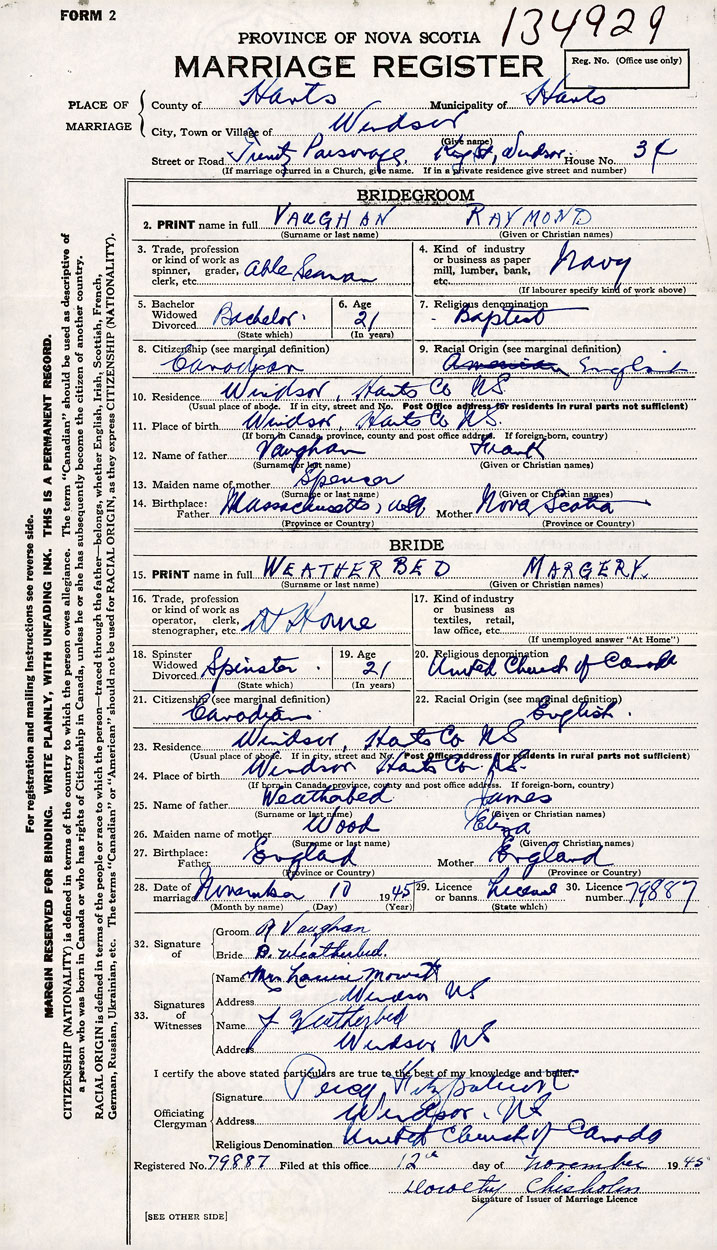 FORM 2
134929
PROVINCE OF NOVA SCOTIA
MARRIAGE REGISTER
Reg. No. (Office use only)
PLACE OF MARRIAGE
County of Hants Municipality of Hants
City, Town or Village of Windsor
(Give name)
Street or Road Trinity Parsonage, King St, Windsor. House No. 34
(If marriage occurred in a Church, give name. If in a private residence give street and number)
BRIDEGROOM
2. PRINT name in full VAUGHAN RAYMOND
(Surname or last name) (Given or Christian names)
3. Trade, profession or kind of work as spinner, grader, clerk, etc. Able Seaman
4. Kind of industry or business as paper mill, lumber, bank, etc. Navy
(If labourer specify kind of work above)
5. Bachelor Widowed Divorced Bachelor.
(State which)
6. Age 21
(In years)
7. Religious denomination
- Baptist
8. Citizenship (see marginal definition)
Canadian
9. Racial Origin (see marginal definition)
American England
10. Residence Windsor, Hants Co NS
(Usual place of abode. If in city, street and No. Post Office address for residents in rural parts not sufficient)
11. Place of birth Windsor, Hants Co NS.
(If born in Canada, province, county and post office address. If foreign-born, country)
12. Name of father Vaughan Frank
(Surname or last name) (Given or Christian names)
13. Maiden name of mother Spencer
(Surname or last name) (Given or Christian names)
14. Birthplace: Father Massachusetts, USA Mother Nova Scotia
(Province or Country) (Province or Country)
BRIDE
15. PRINT name in full WEATHERBED MARGERY.
(Surname or last name) (Given or Christian names)
16. Trade, profession or kind of work as operator, clerk, stenographer, etc. At Home
17. Kind of industry or business as textiles, retail, law office, etc.
(If unemployed answer "At Home")
18. Spinster Widowed Divorced Spinster.
(State which)
19. Age 21
(In years)
20. Religious denomination
United Church of Canada
21. Citizenship (see marginal definition)
Canadian.
22. Racial Origin (see marginal definition)
English.
23. Residence Windsor, Hants Co NS
(Usual place of abode. If in city, street and No. Post Office address for residents in rural parts not sufficient)
24. Place of birth Windsor Hants Co. NS.
(If born in Canada, province, county and post office address. If foreign-born, country)
25. Name of father Weatherbed James
(Surname or last name) (Given or Christian names)
26. Maiden name of mother Wood Eliza
(Surname or last name) (Given or Christian names)
27. Birthplace: Father England Mother England
(Province or Country) (Province or Country)
28. Date of marriage November 10 1945
(Month by name) (Day) (Year)
29. Licence or banns License
(State which)
30. Licence number 79887
32. Signature of
Groom R Vaughan
Bride B. Weatherbed.
33. Signatures of Witnesses
Name Mrs Louise Mowatt
Address Windsor NS
Name J Weatherbed
Address Windsor NS
I certify the above stated particulars are true to the best of my knowledge and belief.
Officiating Clergyman
Signature Percy Fitzpatrick
Address Windsor. NS
Religious Denomination United Church of Canada
Registered No. 79887 Filed at this office 12th day of November 1945
Dorothy Chisholm
Signature of Issuer of Marriage Licence
[SEE OTHER SIDE]
For registration and mailing Instructions see reverse side.
MARGIN RESERVED FOR BINDING. WRITE PLAINLY, WITH UNFADING INK. THIS IS A PERMANENT RECORD.
CITIZENSHIP (NATIONALITY) is defined in terms of the country to which the person owes allegiance. The term "Canadian" should be used as descriptive of
a person who was born in Canada or who has rights of Citizenship in Canada, unless he or she has subsequently become the citizen of another country.
RACIAL ORIGIN is defined in terms of the people or race to which the person—traced through the father—belongs, whether English, Irish, Scottish, French,
German, Russian, Ukrainian, etc. The terms "Canadian" or "American" should not be used for RACIAL ORIGIN, as they express CITIZENSHIP (NATIONALITY).